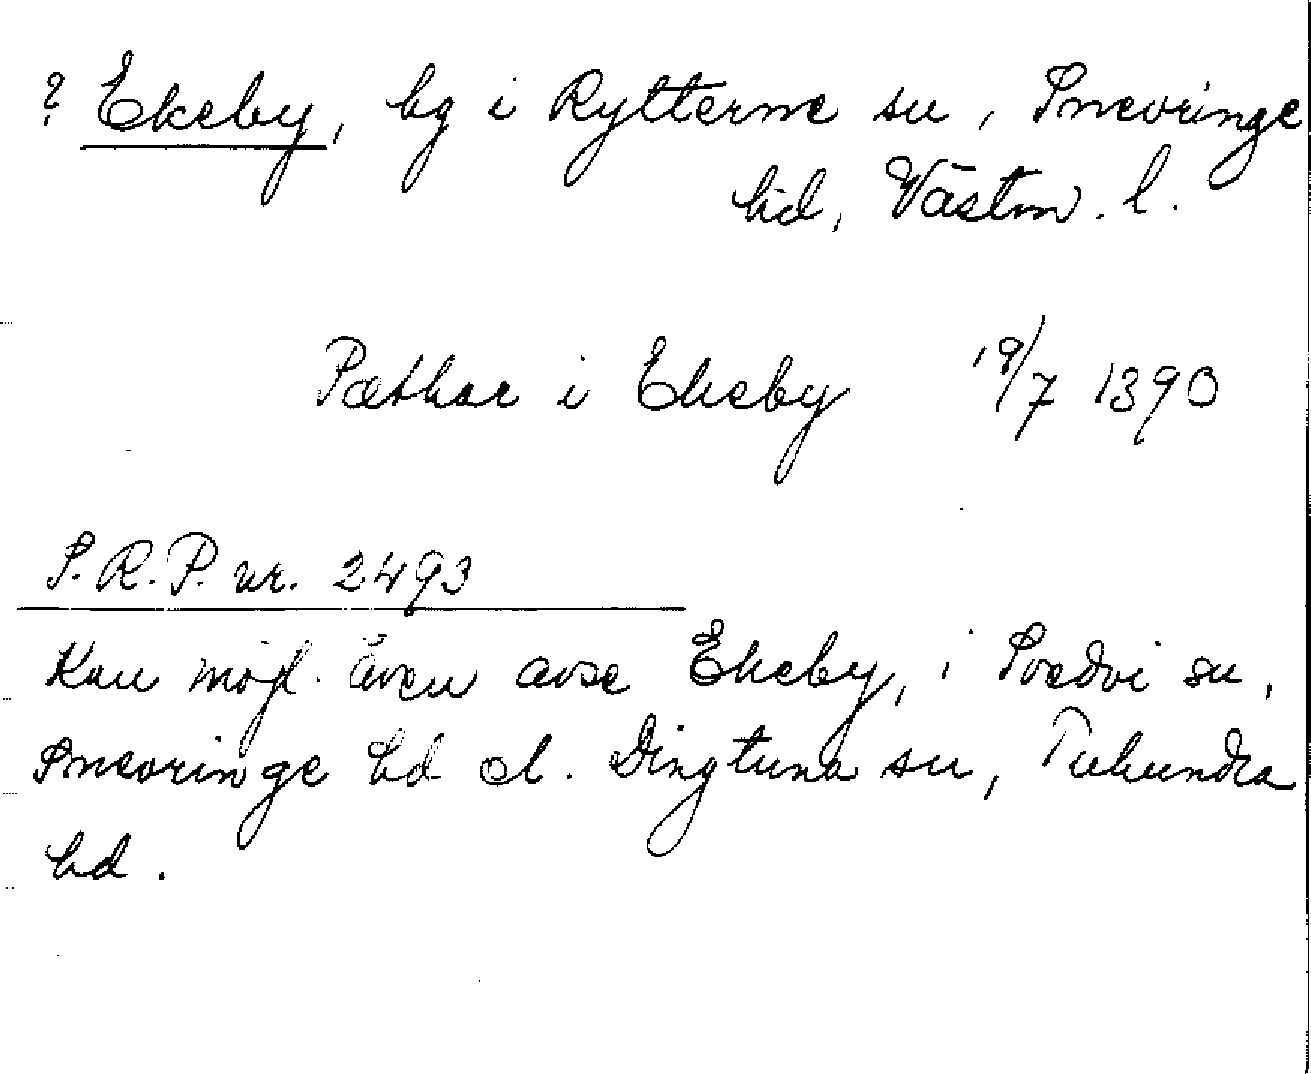 ? Ekeby, by i Rytterne sn, Snevringe
hd, Västm. l.
Pæthar i Ekeby 18/7 1390
S.R.P. nr. 2493
Kan möjl. även avse Ekeby, i Svedvi sn,
Snevringe hd el. Dingtuna sn, Tuhundra
hd.